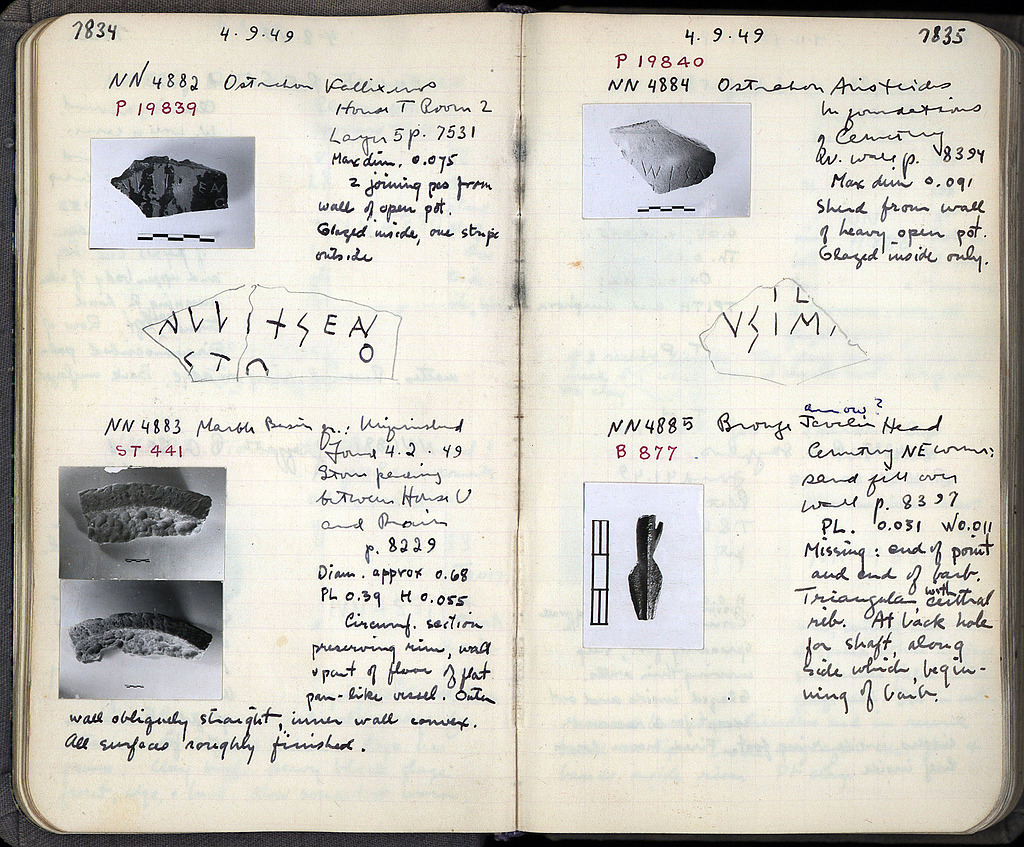 7834
4.9.49
NN 4882 Ostrakon Kallixenos
P 19839
House T Room 2
Layer 5 p. 7531
Max dim. 0.075
2 joining pcs from
wall of open pot.
Glazed inside, one stripe
outside
NN 4883 Marble Basin Fr.: Unfinished
ST 441
Found 4.2.49
Stone packing
between House U
and Drain
p. 8229
Diam. approx 0.68
PL 0.39 H 0.055
Circumf. section
preserving rim, wall
& part of floor of flat
pan-like vessel. Outer
wall obliquely straight, inner wall convex.
All surfaces roughly finished.
4.9.49
7835
P 19840
NN 4884 Ostrakon Aristeides
In foundations
of Cemetery
Rv. wall p. 8394
Max dim 0.091
Sherd from wall
of heavy open pot.
Glazed inside only.
IL
arrow?
NN 4885 Bronze Javelin Head
B 877
Cemetery NE corner;
sand fill over
wall p. 8397
PL. 0.031 W 0.011
Missing: end of point
and end of barb.
Triangular with central
rib. At back hole
for shaft, along
side which, begin-
ning of barb.